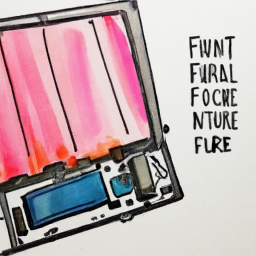 FIUNT
FURAL
FOCHE
NTURE
FLRE